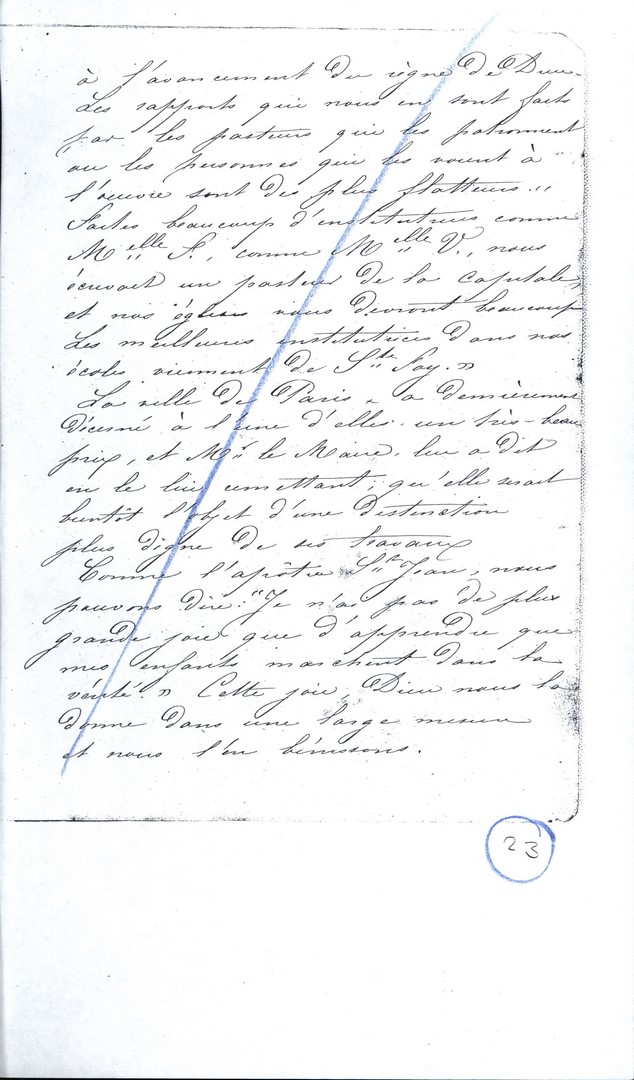 à l'avancement du règne de Dieu.
Les rapports qui nous en sont faits
par les pasteurs qui les patronnent
ou les personnes qui les vouent à
l'œuvre sont des plus flatteurs. "
Faites beaucoup d'institutrices comme
Melle F., comme Melle V., nous
écrivait un pasteur de la capitale,
et nos églises vous devront beaucoup
Les meilleures institutrices dans nos
écoles viennent de Ste Foy. »
La ville de Paris a dernièrement
décerné à l'une d'elles un très-beau
prix, et Mr le Maire, lui a dit
en le lui remettant, qu'elle serait
bientôt l'objet d'une distinction
plus digne de ses travaux
Comme l'apôtre St Jean, nous
pouvons dire : "Je n'ai pas de plus
grande joie que d'apprendre que
mes enfants marchent dans la
vérité. » Cette joie, Dieu nous la
donne dans une large mesure
et nous l'en bénissons.
23